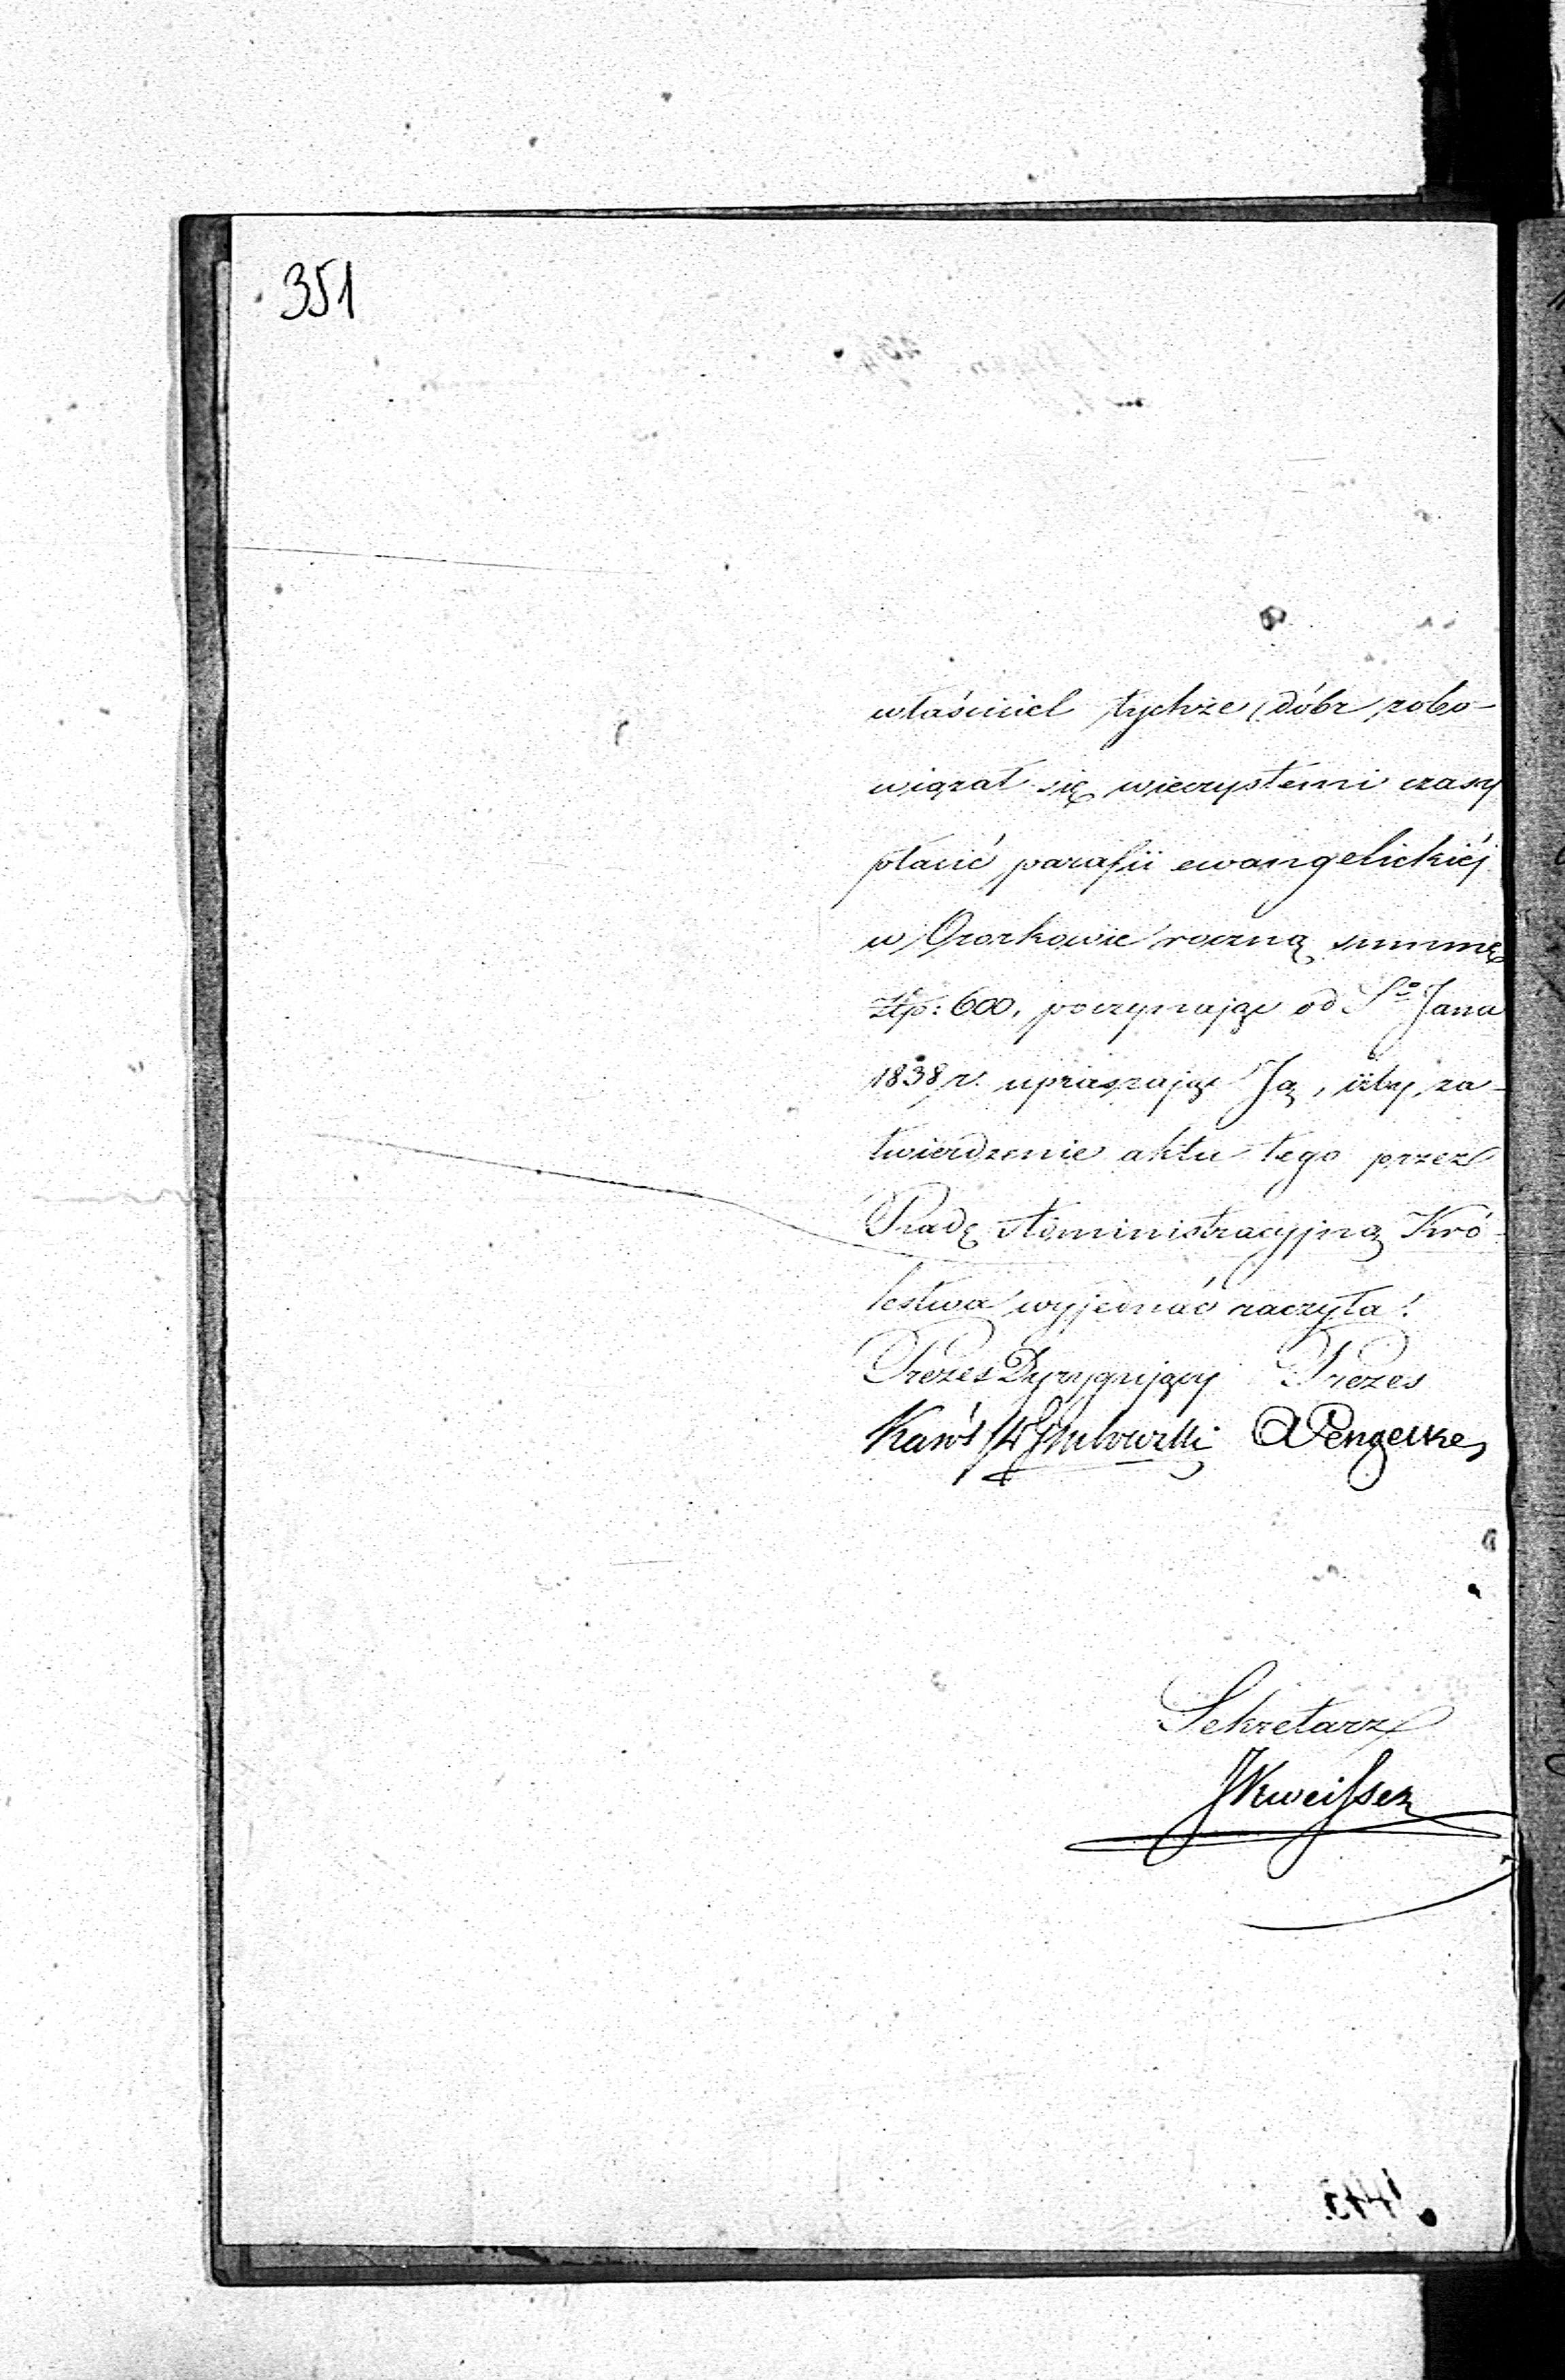 351
właściciel tychże dóbr zobo-
wiązał się wieczystemi czasy
płacić parafii ewangelickiéj
w Ozorkowie roczną summę
Złp: 600, poczynając od Sgo Jana
1838 r. upraszając Ją, iżby za-
twierdzenie aktu tego przez
Radę Administracyjną Kró-
lestwa wyjednać raczyła!
Prezes Dyrygujący Prezes
APengelke
Sekretarz